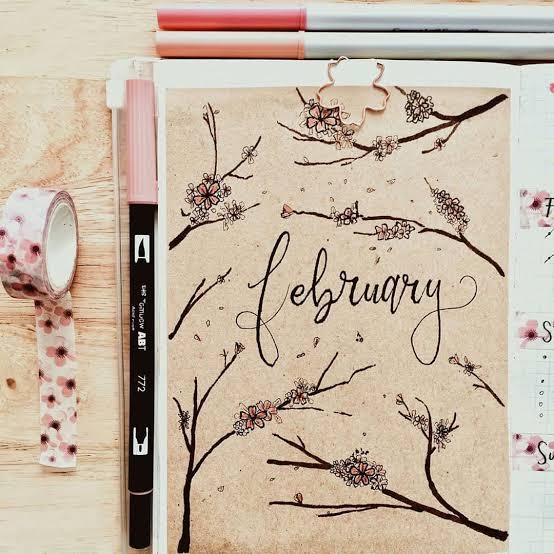 february
Tombow ABT
772
F
S
Su